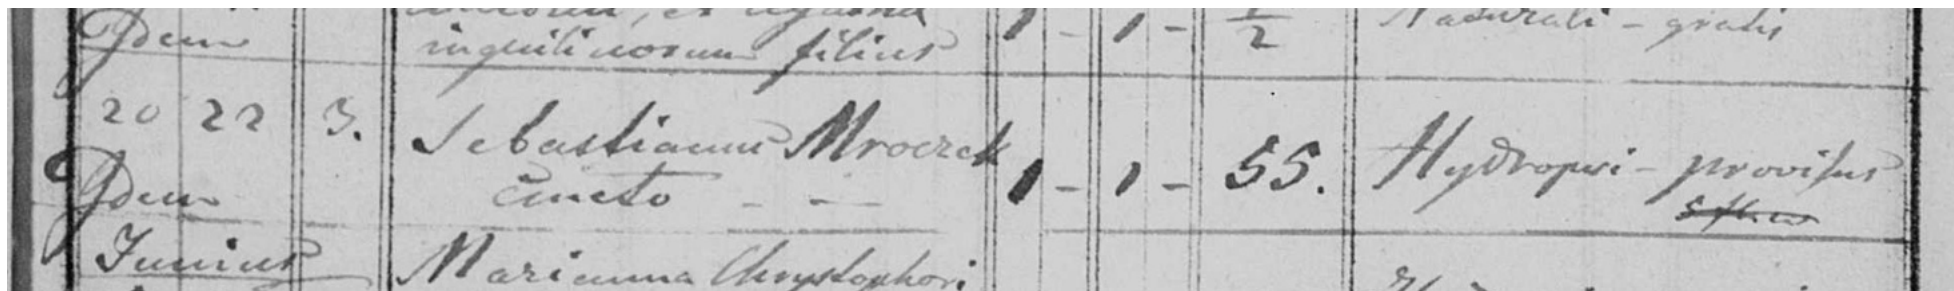 inquilinorum filius 1 - 1 - 1/2 Naturali - gratis
Idem
20 22 3. Sebastianus Mroczek 1 - 1 - 55. Hydropsi - provisus
Idem Cmeto - -
Junius Marianna Chrystophori